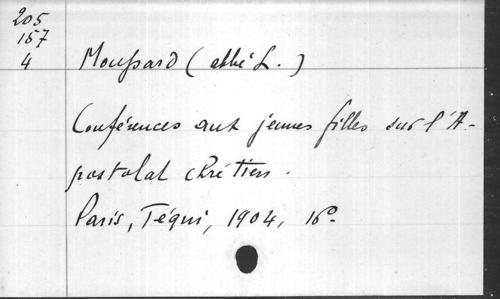 205
157
4
Moussard (abbé L.)
Conférences aux jeunes filles sur l'A-
postolat chrétien.
Paris, Téqui, 1904, 16°.